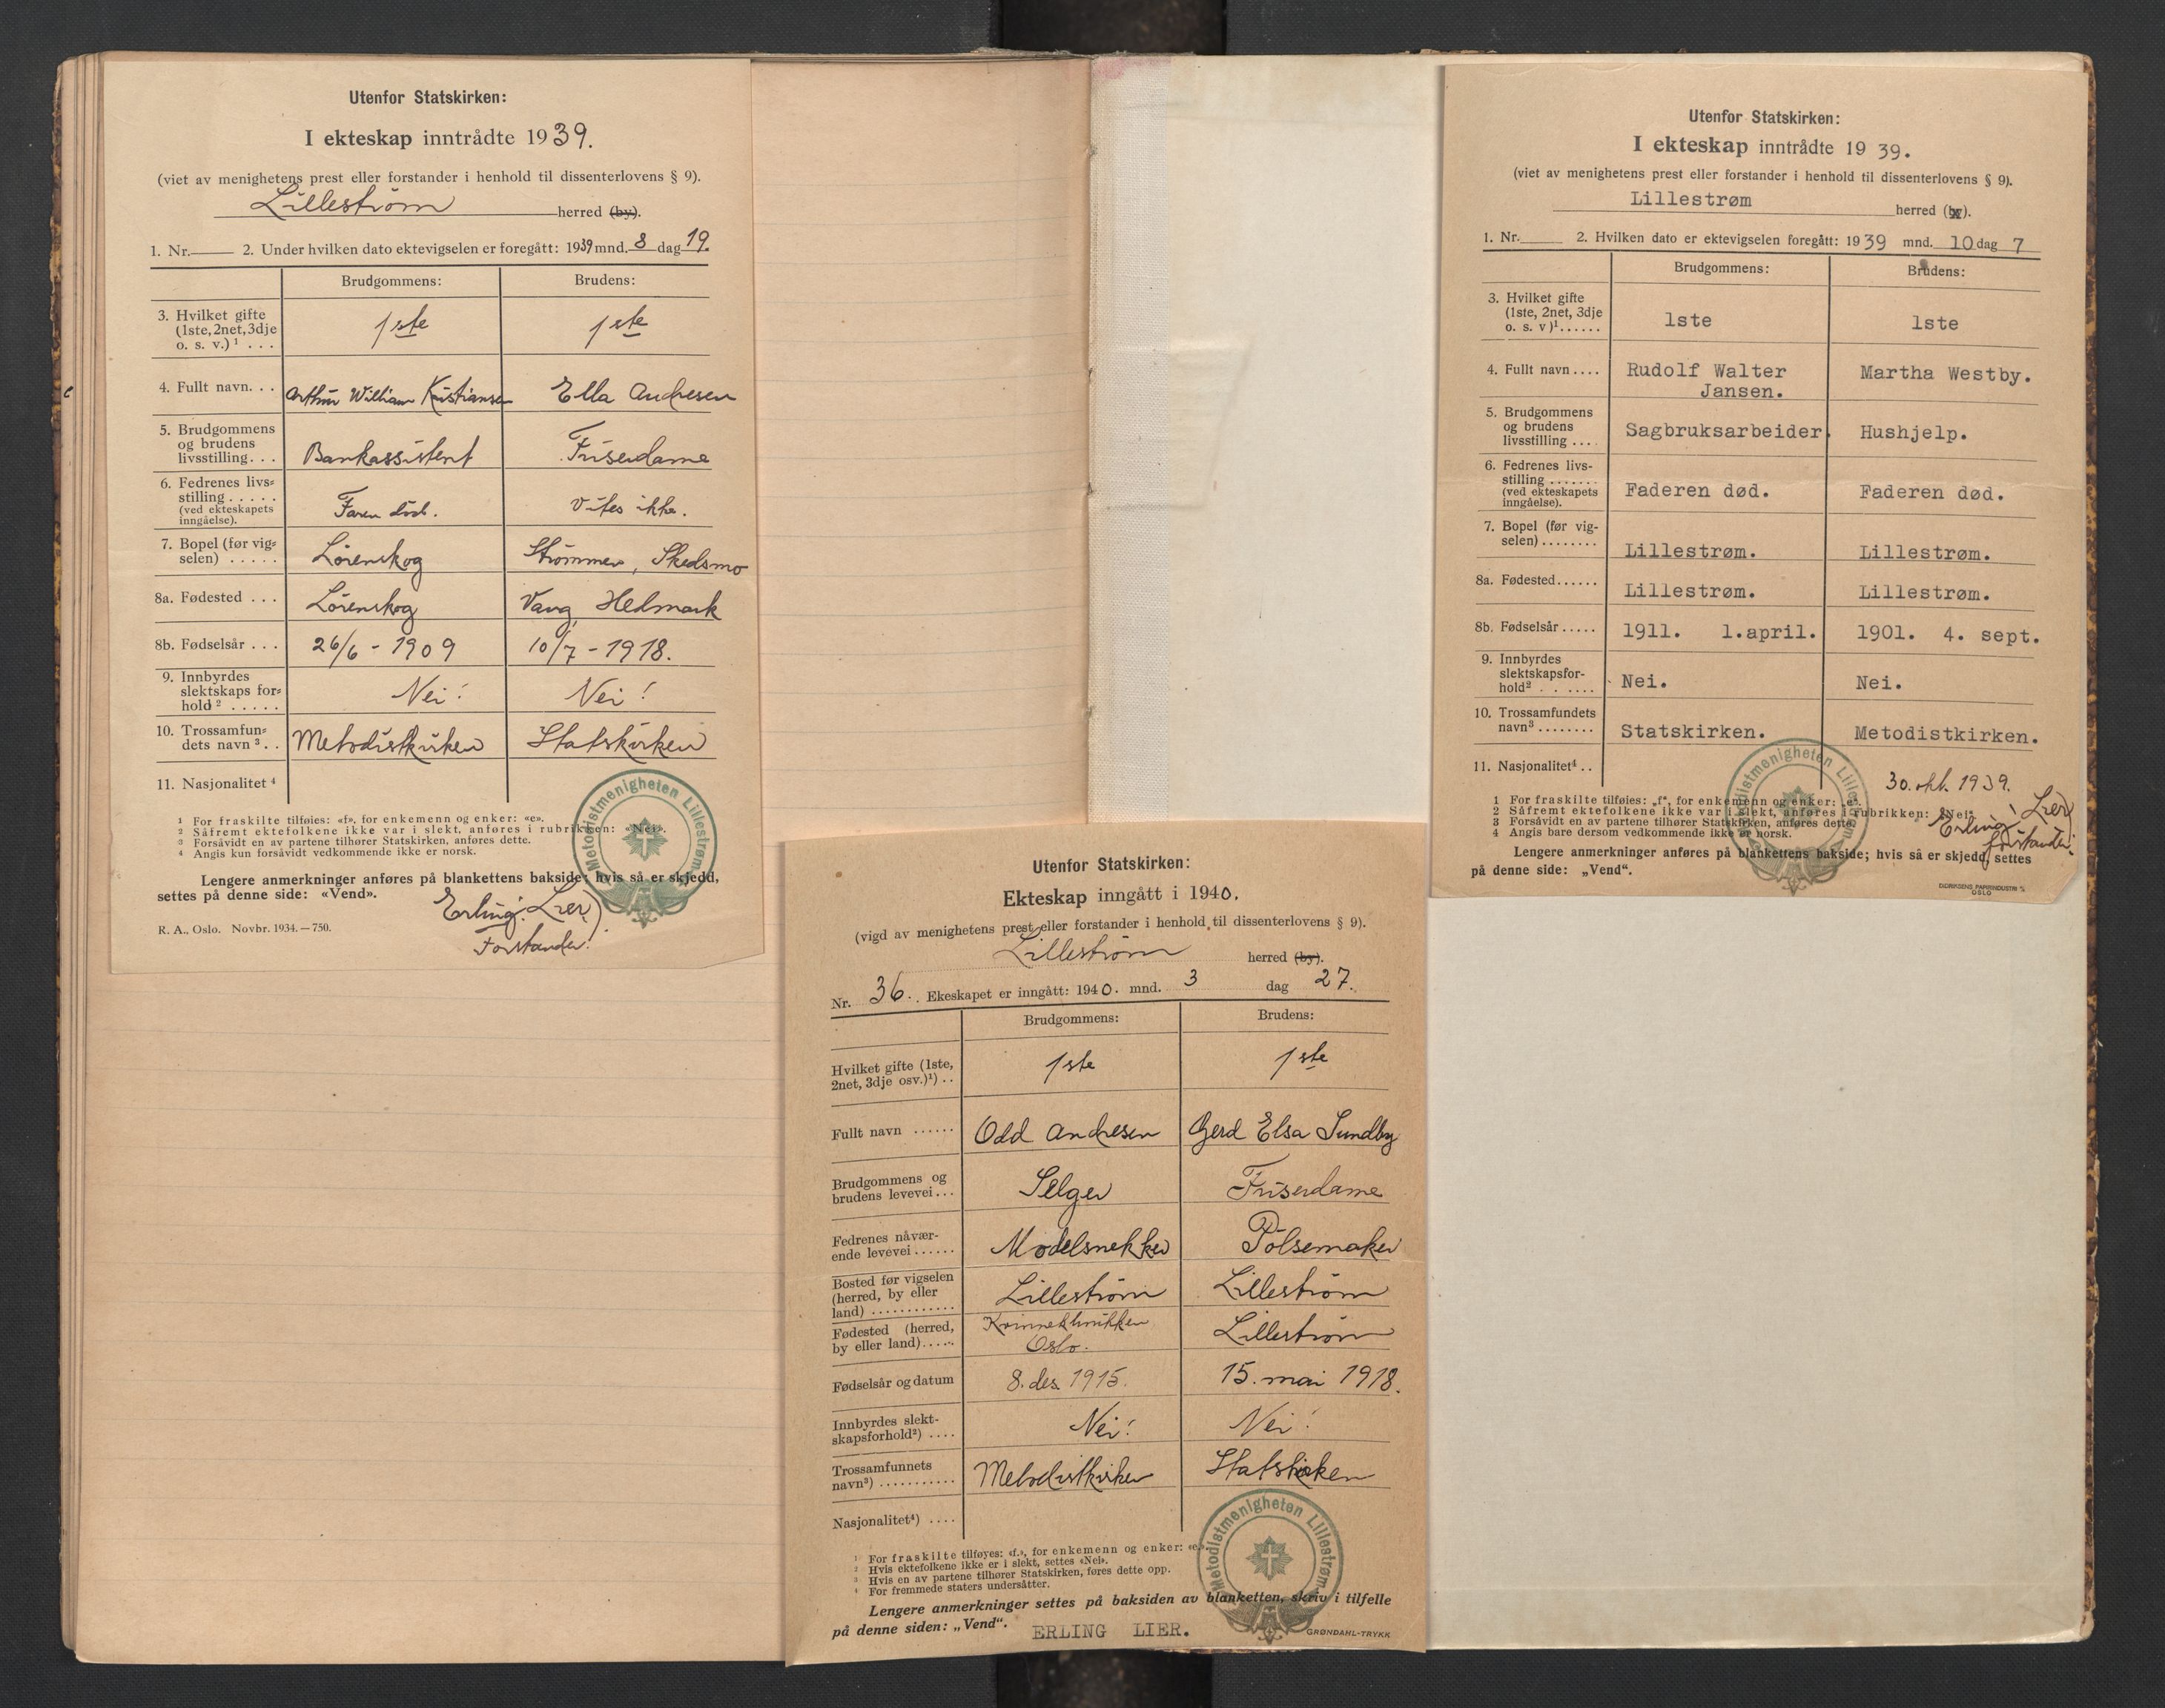 Utenfor Statskirken:
I ekteskap inntrådte 1939.
(viet av menighetens prest eller forstander i henhold til dissenterlovens § 9).
Lillestrøm herred (by).
1. Nr. 2. Under hvilken dato ektevigselen er foregått: 1939 mnd. 8 dag 19.
Brudgommens: Brudens:
3. Hvilket gifte
(1ste, 2net, 3dje
o. s. v.)¹ . . . 1ste 1ste
4. Fullt navn. . . Arthur William Kristiansen Ella Andresen
5. Brudgommens
og brudens
livsstilling. . . Bankassistent Friserdame
6. Fedrenes livs=
stilling . . . . .
(ved ekteskapets
inngåelse). Faren død. Vites ikke.
7. Bopel (før vig=
selen) . . . . . Lörenskog Strömmen, Skedsmo
8a. Fødested . . . Lörenskog Vang, Hedmark
8b. Fødselsår . . . 26/6 - 1909 10/7 - 1918.
9. Innbyrdes
slektskaps for=
hold ² . . . . . Nei! Nei!
10. Trossamfun=
dets navn ³ . . Metodistkirken Statskirken
11. Nasjonalitet ⁴
¹ For fraskilte tilføies: «f», for enkemenn og enker: «e».
² Såfremt ektefolkene ikke var i slekt, anføres i rubrikken: «Nei».
³ Forsåvidt en av partene tilhører Statskirken, anføres dette.
⁴ Angis kun forsåvidt vedkommende ikke er norsk.
Lengere anmerkninger anføres på blankettens bakside; hvis så er skjedd,
settes på denne side: «Vend».
Metodistmenigheten Lillestrøm
Erling Lier
Forstander.
R. A., Oslo. Novbr. 1934. — 750.
Utenfor Statskirken:
Ekteskap inngått i 1940.
(vigd av menighetens prest eller forstander i henhold til dissenterlovens § 9).
Lilleström herred (by).
Nr. 36. Ekeskapet er inngått: 1940. mnd. 3 dag 27.
Brudgommens: Brudens:
Hvilket gifte (1ste,
2net, 3dje osv.)¹) . . 1ste 1ste
Fullt navn ...... Odd Andresen Gerd Elsa Sundby
Brudgommens og
brudens levevei... Selger Friserdame
Fedrenes nåvær-
ende levevei ...... Modelsnekker Pölsemaker
Bosted før vigselen
(herred, by eller
land) ............ Lilleström Lilleström
Fødested (herred,
by eller land)..... Kvinneklinikken Oslo. Lilleström
Fødselsår og datum 8. des. 1915. 15. mai 1918.
Innbyrdes slekt-
skapsforhold²) .... Nei! Nei!
Trossamfunnets
navn³) ........... Metodistkirken Statskirken
Nasjonalitet⁴) ....
¹ For fraskilte tilføyes: «f.», for enkemenn og enker: «e.».
² Hvis ektefolkene ikke er i slekt, settes «Nei».
³ Hvis en av partene tilhører Statskirken, føres dette opp.
⁴ For fremmede staters undersåtter.
Lengere anmerkninger settes på baksiden av blanketten, skriv i tilfelle
på denne siden: „Vend“.
ERLING LIER.
Metodistmenigheten Lillestrøm
GRØNDAHL-TRYKK
Utenfor Statskirken:
I ekteskap inntrådte 1939.
(viet av menighetens prest eller forstander i henhold til dissenterlovens § 9).
Lillestrøm herred (by).
1. Nr. 2. Hvilken dato er ektevigselen foregått: 1939 mnd. 10 dag 7
Brudgommens: Brudens:
3. Hvilket gifte
(1ste, 2net, 3dje
o. s. v)¹...... 1ste 1ste
4. Fullt navn .... Rudolf Walter Jansen. Martha Westby.
5. Brudgommens
og brudens
livsstilling .... Sagbruksarbeider. Hushjelp.
6. Fedrenes livs-
stilling .......
(ved ekteskapets
inngåelse). Faderen død. Faderen død.
7. Bopel (før vig-
selen) ........ Lillestrøm. Lillestrøm.
8a. Fødested...... Lillestrøm. Lillestrøm.
8b. Fødselsår ..... 1911. 1.april. 1901. 4. sept.
9. Innbyrdes
slektskapsfor-
hold² . . ..... Nei. Nei.
10. Trossamfundets
navn³ ........ Statskirken. Metodistkirken.
11. Nasjonalitet⁴ . .
30. okt. 1939.
Erling Lier
forstander.
1 For fraskilte tilføies: „f“, for enkemenn og enker: „e“.
2 Såfremt ektefolkene ikke var i slekt, anføres i rubrikken: „Nei“.
3 Forsåvidt en av partene tilhører Statskirken, anføres dette.
4 Angis bare dersom vedkommende ikke er norsk.
Lengere anmerkninger anføres på blankettens bakside; hvis så er skjedd, settes
på denne side: „Vend“.
Metodistmenigheten Lillestrøm
OSLO